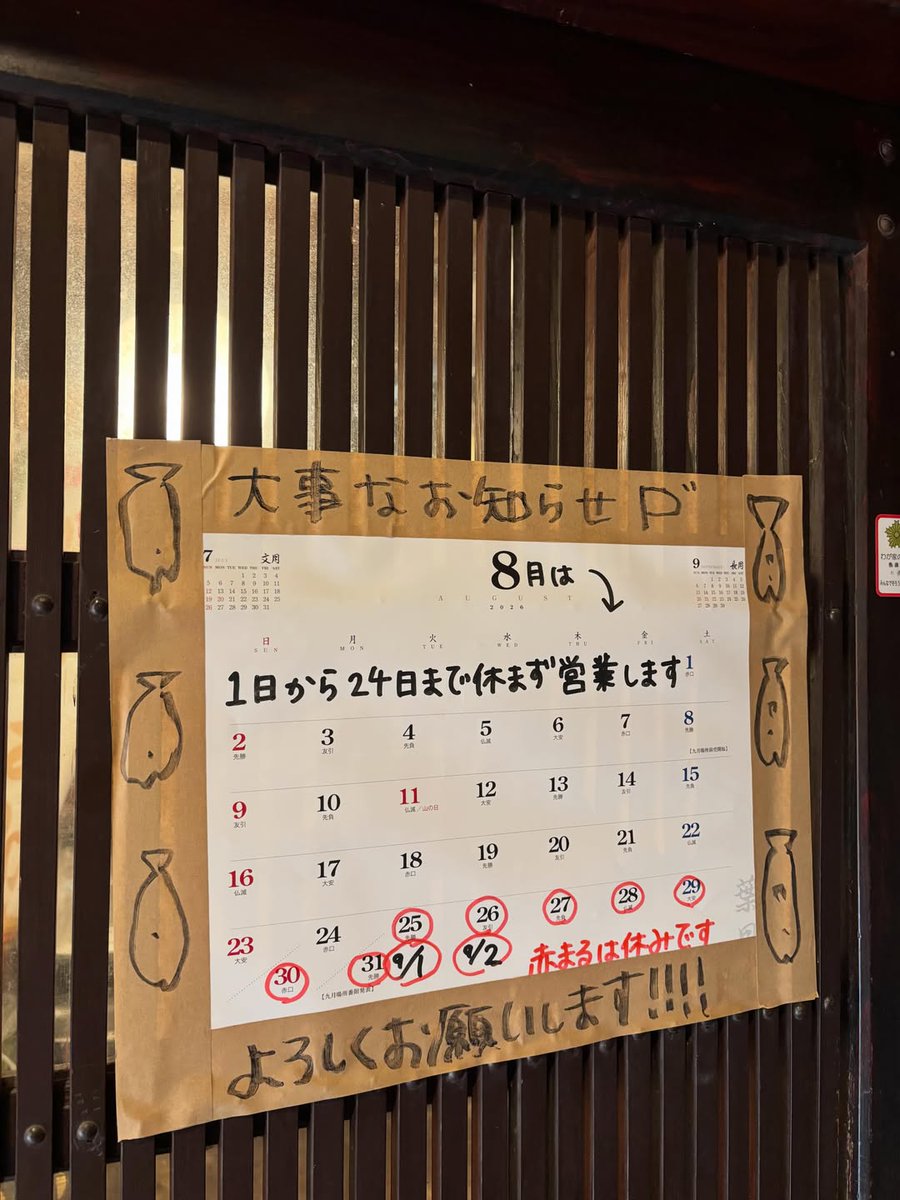 大事なお知らせ
7 文月
SUN MON TUE WED THU FRI SAT
1 2 3 4
5 6 7 8 9 10 11
12 13 14 15 16 17 18
19 20 21 22 23 24 25
26 27 28 29 30 31
8月は
AUGUST
2026
9 長月
日 月 火 水 木 金 土
SUN MON TUE WED THU FRI SAT
1日から24日まで休まず営業します
1
赤口
2 3 4 5 6 7 8
先勝 友引 先負 仏滅 大安 赤口 先勝
【九月場所前売開始】
9 10 11 12 13 14 15
友引 先負 仏滅/山の日 大安 赤口 先勝 友引 先負
16 17 18 19 20 21 22
仏滅 大安 赤口 先勝 友引 先負 仏滅
23 24 25 26 27 28 29
大安 赤口 先勝 友引 先負 仏滅 大安
30 31 9/1 9/2
赤口 先勝
赤まるは休みです
【九月場所番附発表】
よろしくお願いします!!!!
わが家の